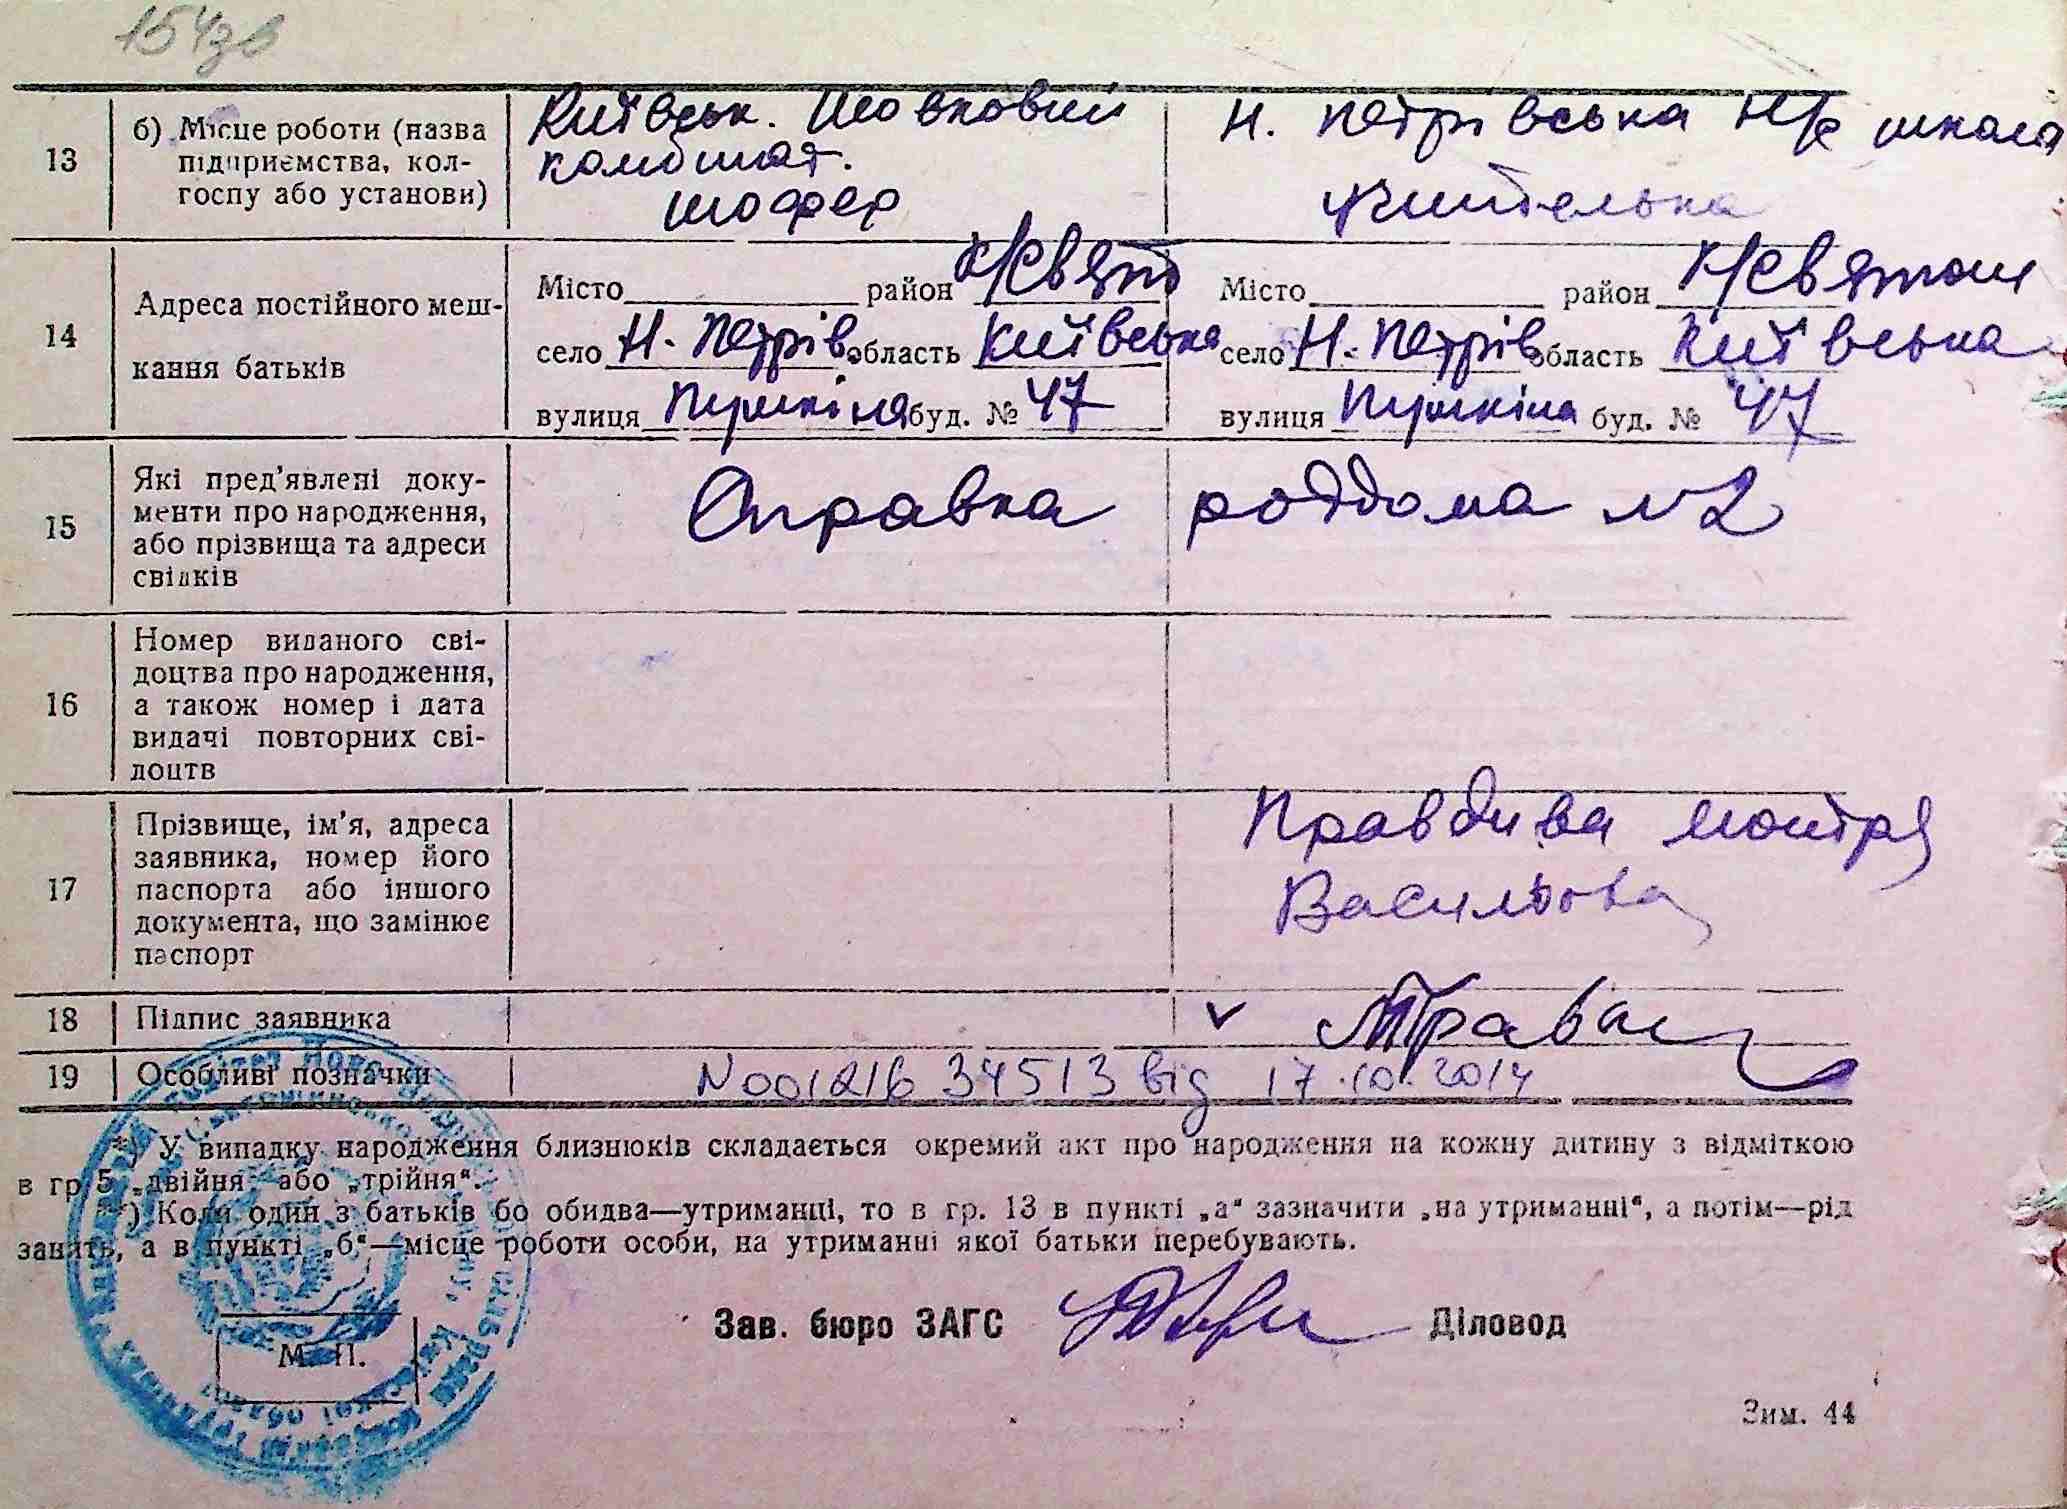 154зв
13 б) Місце роботи (назва підприємства, колгоспу або установи)
Київськ. Шовковий комбінат. шофер
Н. Петрівська Н/с школа учителька
14 Адреса постійного мешкання батьків
Місто район К/Свят
село Н. Петрів. область Київська
вулиця Пушкіна буд. № 47
Місто район К/Святош
село Н. Петрів. область Київська
вулиця Пушкіна буд. № 47
15 Які пред'явлені документи про народження, або прізвища та адреси свідків
Справка роддома №2
16 Номер виданого свідоцтва про народження, а також номер і дата видачі повторних свідоцтв
17 Прізвище, ім'я, адреса заявника, номер його паспорта або іншого документа, що замінює паспорт
Правдива
18 Підпис заявника
19 Особливі позначки
N00121634513 від 17.10.2014
*) У випадку народження близнюків складається окремий акт про народження на кожну дитину з відміткою
в гр. 5 „двійня" або „трійня".
**) Коли один з батьків бо обидва—утриманці, то в гр. 13 в пункті „а" зазначити „на утриманні", а потім—рід
занять, а в пункті „б"—місце роботи особи, на утриманні якої батьки перебувають.
Зав. бюро ЗАГС Діловод
М. П.
Зим. 44